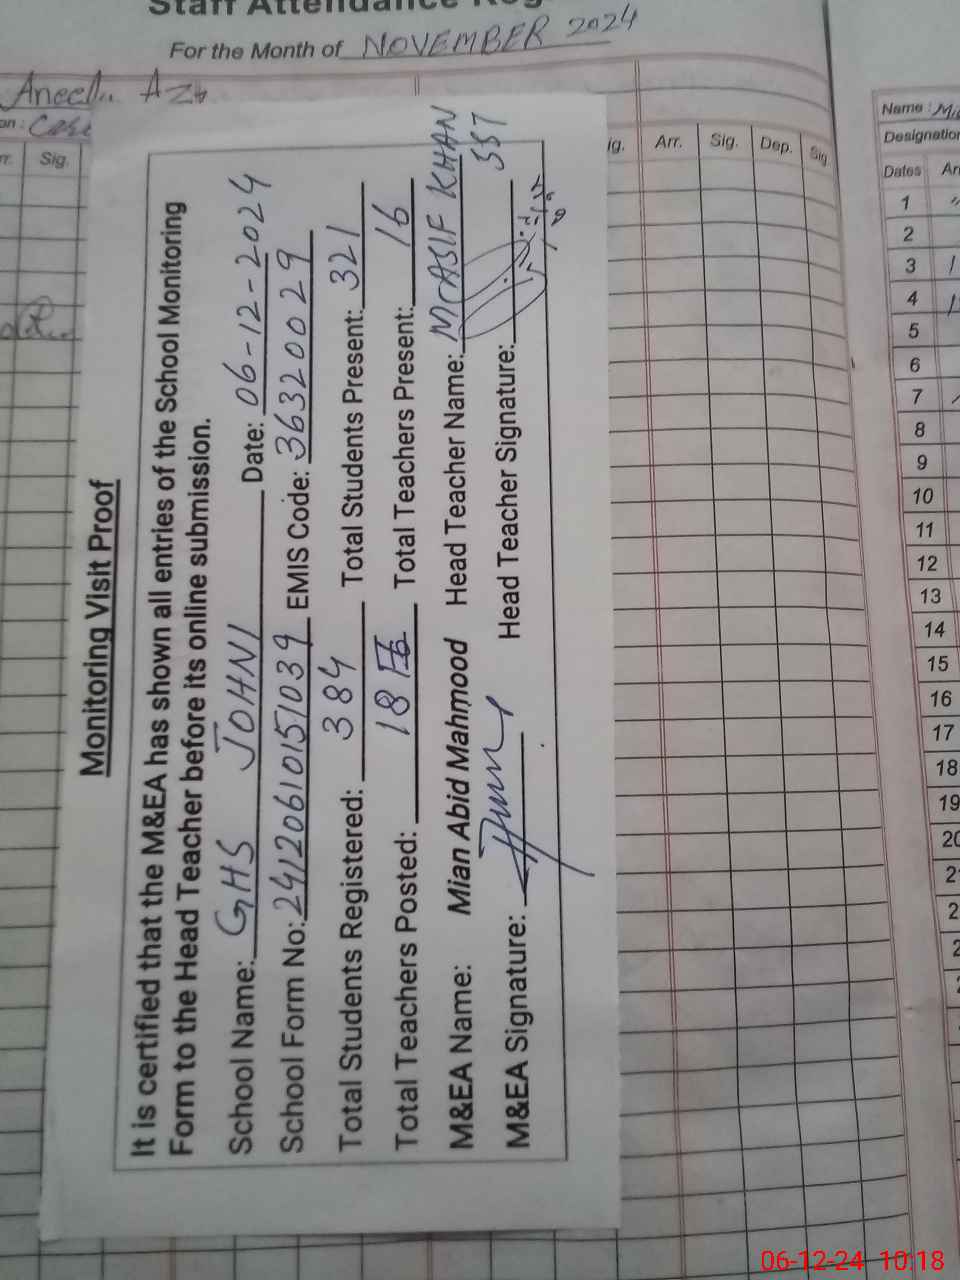 Staff Attendance Reg
For the Month of NOVEMBER 2024
Sig.
ig. Arr. Sig. Dep. Sig
Monitoring Visit Proof
It is certified that the M&EA has shown all entries of the School Monitoring
Form to the Head Teacher before its online submission.
School Name: GHS JOHNI Date: 06-12-2024
School Form No: 24120610151039 EMIS Code: 36320029
Total Students Registered: 384 Total Students Present: 321
Total Teachers Posted: 18 Total Teachers Present: 16
M&EA Name: Mian Abid Mahmood Head Teacher Name: M ASIF KHAN
SST
M&EA Signature: Head Teacher Signature:
Name :
Designation
Dates
1
2
3
4
5
6
7
8
9
10
11
12
13
14
15
16
17
18
19
20
06-12-24 10:18